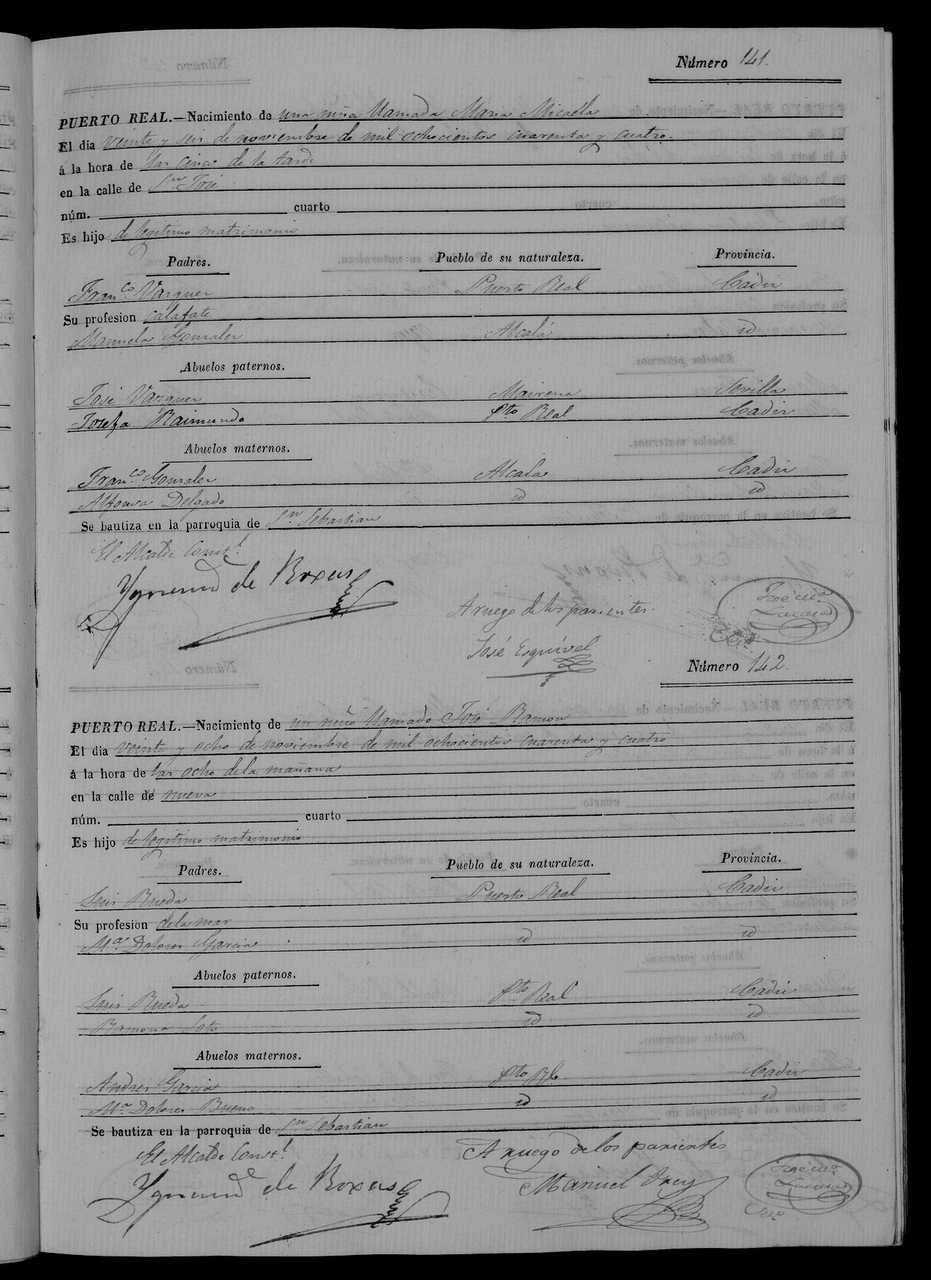 Número 141.
PUERTO REAL.—Nacimiento de una niña llamada Maria Micaela
El dia veinte y seis de noviembre de mil ochocientos cuarenta y cuatro.
á la hora de las cinco de la tarde
en la calle de Sn José
núm. cuarto
Es hijo de legitimo matrimonio
Padres. Pueblo de su naturaleza. Provincia.
Franco Vazquez Puerto Real Cadiz
Su profesion calafate
Manuela Gonzalez Alcalá id
Abuelos paternos.
José Vazquez Mairena Sevilla
Josefa Raimundo Pto Real Cadiz
Abuelos maternos.
Franco Gonzalez Alcala Cadiz
Alfonsa Delgado id id
Se bautiza en la parroquia de Sn Sebastian
El Alcalde Const.l
de
A ruego de los parientes
José Esquivel
Número 142.
PUERTO REAL.—Nacimiento de un niño llamado José Ramon
El dia veinte y ocho de noviembre de mil ochocientos cuarenta y cuatro
á la hora de las ocho de la mañana
en la calle de nueva
núm. cuarto
Es hijo de legitimo matrimonio
Padres. Pueblo de su naturaleza. Provincia.
Luis Rueda Puerto Real Cadiz
Su profesion de la mar
Ma Dolores Garcia id id
Abuelos paternos.
Luis Rueda Pto Real Cadiz
Ramona Soto id id
Abuelos maternos.
Andres Garcia Pto Rl Cadiz
Ma Dolores Bueno id id
Se bautiza en la parroquia de Sn Sebastian
El Alcalde Const.l A ruego de los parientes
de Manuel